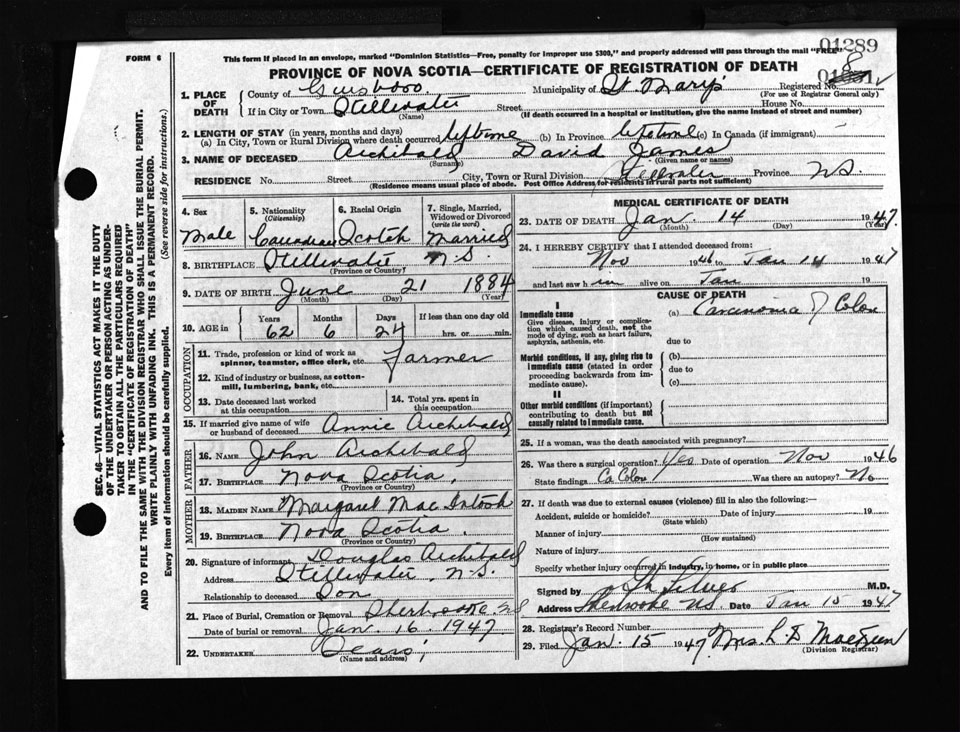 01289
FORM 6
This form if placed in an envelope, marked "Dominion Statistics—Free, penalty for improper use $300," and properly addressed will pass through the mail "FREE"
PROVINCE OF NOVA SCOTIA—CERTIFICATE OF REGISTRATION OF DEATH
SEC. 46—VITAL STATISTICS ACT MAKES IT THE DUTY
OF THE UNDERTAKER OR PERSON ACTING AS UNDER-
TAKER TO OBTAIN ALL THE PARTICULARS REQUIRED
IN THE "CERTIFICATE OF REGISTRATION OF DEATH"
AND TO FILE THE SAME WITH THE DIVISION REGISTRAR WHO SHALL ISSUE THE BURIAL PERMIT.
WRITE PLAINLY WITH UNFADING INK. THIS IS A PERMANENT RECORD.
Every item of information should be carefully supplied. (See reverse side for instructions.)
1. PLACE OF DEATH
County of Municipality of St Mary's Registered No. 8
(For use of Registrar General only)
If in City or Town Stillwater Street House No.
(Name) (If death occurred in a hospital or institution, give the name instead of street and number)
2. LENGTH OF STAY (in years, months and days)
(a) In City, Town or Rural Division where death occurred lifetime (b) In Province lifetime (c) In Canada (if immigrant)
3. NAME OF DECEASED Archibald David James
(Surname) (Given name or names)
RESIDENCE No. Street City, Town or Rural Division Stillwater Province N.S.
(Residence means usual place of abode. Post Office Address for residents in rural parts not sufficient)
4. Sex Male
5. Nationality (Citizenship) Canadian
6. Racial Origin Scotch
7. Single, Married, Widowed or Divorced (write the word) Married
8. BIRTHPLACE Stillwater N.S.
(Province or Country)
9. DATE OF BIRTH June 21 1884
(Month) (Day) (Year)
10. AGE in Years 62 Months 6 Days 24 If less than one day old
hrs. or min.
OCCUPATION
11. Trade, profession or kind of work as spinner, teamster, office clerk, etc. Farmer
12. Kind of industry or business, as cotton-mill, lumbering, bank, etc.
13. Date deceased last worked at this occupation
14. Total yrs. spent in this occupation
15. If married give name of wife or husband of deceased Annie Archibald
FATHER
16. NAME John Archibald
17. BIRTHPLACE Nova Scotia
(Province or Country)
MOTHER
18. MAIDEN NAME Margaret MacIntosh
19. BIRTHPLACE Nova Scotia
(Province or Country)
20. Signature of informant Douglas Archibald
Address Stillwater, N.S.
Relationship to deceased Son
21. Place of Burial, Cremation or Removal Sherbrooke NS
Date of burial or removal Jan. 16 1947
22. UNDERTAKER
(Name and address)
MEDICAL CERTIFICATE OF DEATH
23. DATE OF DEATH Jan 14 1947
(Month) (Day) (Year)
24. I HEREBY CERTIFY that I attended deceased from:
Nov 1946 to Jan 14 1947
and last saw him alive on Jan 19
CAUSE OF DEATH
I
Immediate cause (a) Carcinoma of Colon
Give disease, injury or complication which caused death, not the mode of dying, such as heart failure, asphyxia, asthenia, etc.
due to
Morbid conditions, if any, giving rise to immediate cause (stated in order proceeding backwards from immediate cause). (b)
due to
(c)
II
Other morbid conditions (if important) contributing to death but not causally related to immediate cause.
25. If a woman, was the death associated with pregnancy?
26. Was there a surgical operation? Yes Date of operation Nov 1946
State findings Ca Colon Was there an autopsy? No
27. If death was due to external causes (violence) fill in also the following:—
Accident, suicide or homicide? Date of injury 19
(State which)
Manner of injury
(How sustained)
Nature of injury
Specify whether injury occurred in industry, in home, or in public place
Signed by M.D.
Address Sherbrooke NS Date Jan 15 1947
28. Registrar's Record Number
29. Filed Jan. 15 1947 Mrs.
(Division Registrar)